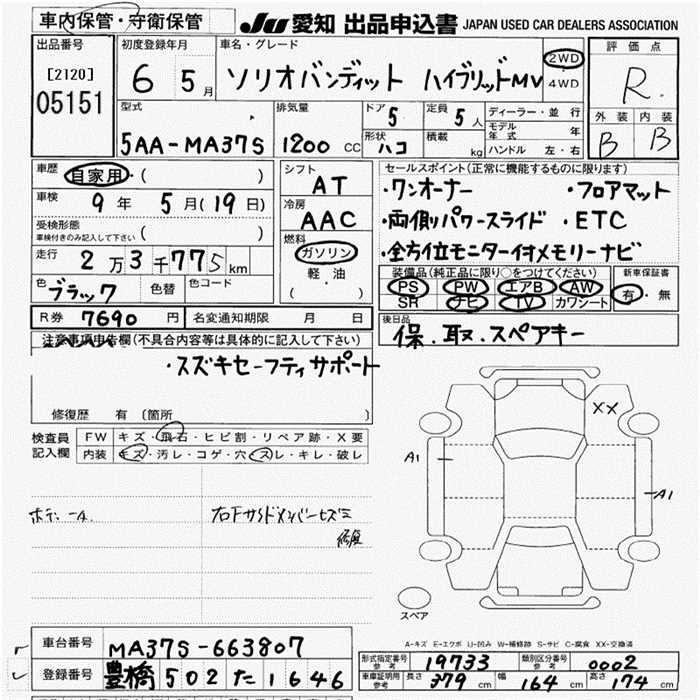 車内保管・守衛保管
JU 愛知 出品申込書 JAPAN USED CAR DEALERS ASSOCIATION
出品番号
[2120]
05151
初度登録年月
6 5月
車名・グレード
ソリオバンディット ハイブリッドMV
2WD
4WD
評価点
R
外装 内装
B B
型式
5AA-MA37S
排気量
1200 CC
ドア
5
形状
ハコ
定員
5人
積載
kg
ディーラー・並行
モデル年式 年
ハンドル 左・右
車歴
自家用・( )
車検
9年 5月(19日)
受検形態
車検付きのみ記入して下さい ( )
走行
2万3千775km
色
ブラック
色替
色コード
R券 7690円
名変通知期限 月 日
シフト
AT
冷房
AAC
燃料
ガソリン
軽・油
( )
セールスポイント(正常に機能するものに限ります)
・ワンオーナー ・フロアマット
・両側パワースライド ・ETC
・全方位モニター付メモリーナビ
装備品(純正品に限り○をつけてください)
PS PW エアB AW
SR ナビ TV カワシート
新車保証書
有・無
後日品
保.取.スペアキー
注意事項申告欄(不具合内容等は具体的に記入して下さい)
・スズキセーフティサポート
修復歴 有 〔箇所 〕
検査員
記入欄
FW キズ・飛石・ヒビ割・リペア跡・X要
内装 キズ・汚レ・コゲ・穴・スレ・キレ・破レ
右下サイドメンバーヒズミ
修復
XX
A1
A1
スペア
A-キズ E-エクボ U-凹み W-補修跡 S-サビ C-腐食 XX-交換済
車台番号 MA37S-663807
登録番号 豊橋 502 た 1646
形式指定番号
参考
19733
類別区分番号
参考
0002
車庫証明用
参考
長さ 379 cm 幅 164 cm 高さ 174 cm